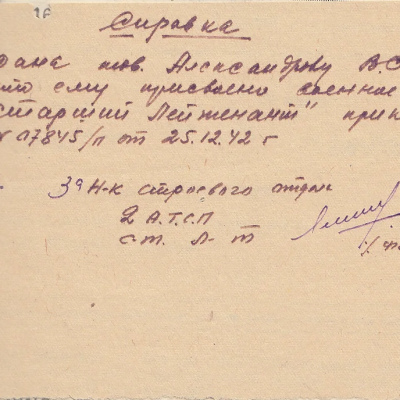 Справка
Дана тов. Александрову В.С
что ему присвоено военное
Старший Лейтенант" прик
№ 17845/п от 25.12.42 г
За Н-к строевого отдела
2 А.Т.С.П
ст. л-т